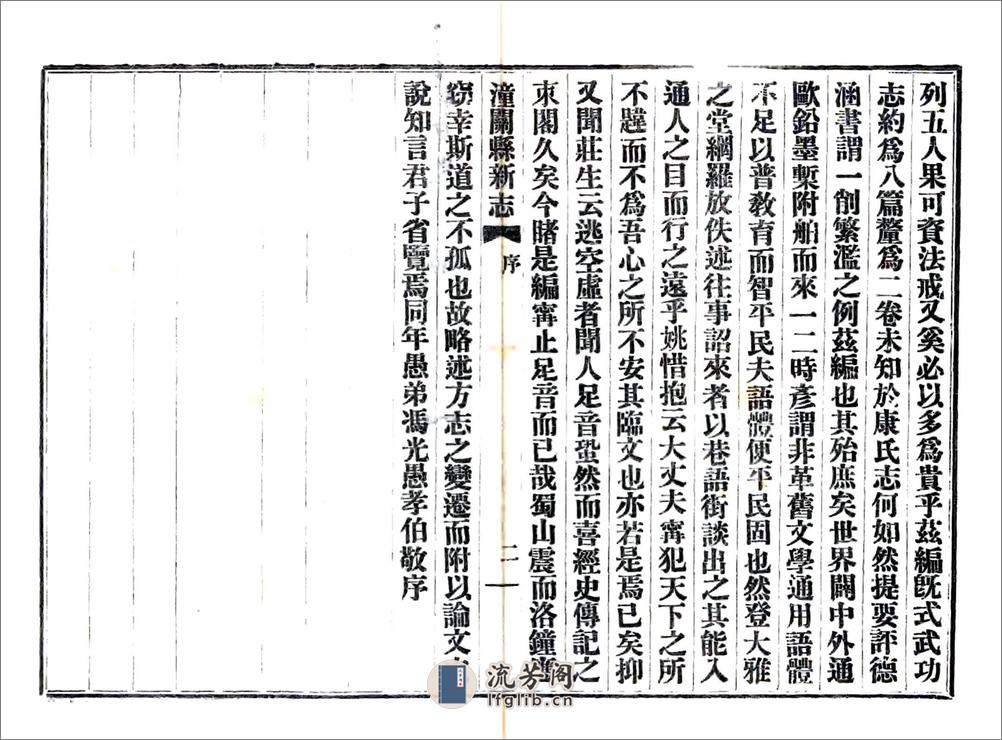 列五人果可資法戒又奚必以多爲貴乎茲編旣式武功
志約爲八篇釐爲二卷未知於康氏志何如然提要評德
涵書謂一削繁濫之例茲編也其殆庶矣世界闢中外通
歐鉛墨槧附舶而來一二時彥謂非革舊文學通用語體
不足以普敎育而智平民夫語體便平民固也然登大雅
之堂網羅放佚述往事詔來者以巷語街談出之其能入
通人之目而行之遠乎姚惜抱云大丈夫寗犯天下之所
不韙而不爲吾心之所不安其臨文也亦若是焉已矣抑
又聞莊生云逃空虛者聞人足音蛩然而喜經史傳記之
束閣久矣今睹是編寗止足音而已哉蜀山震而洛鐘
潼關縣新志
序
二
竊幸斯道之不孤也故略述方志之變遷而附以論文
說知言君子省覽焉同年愚弟馮光愚孝伯敬序
流芳阁
lfglib.cn